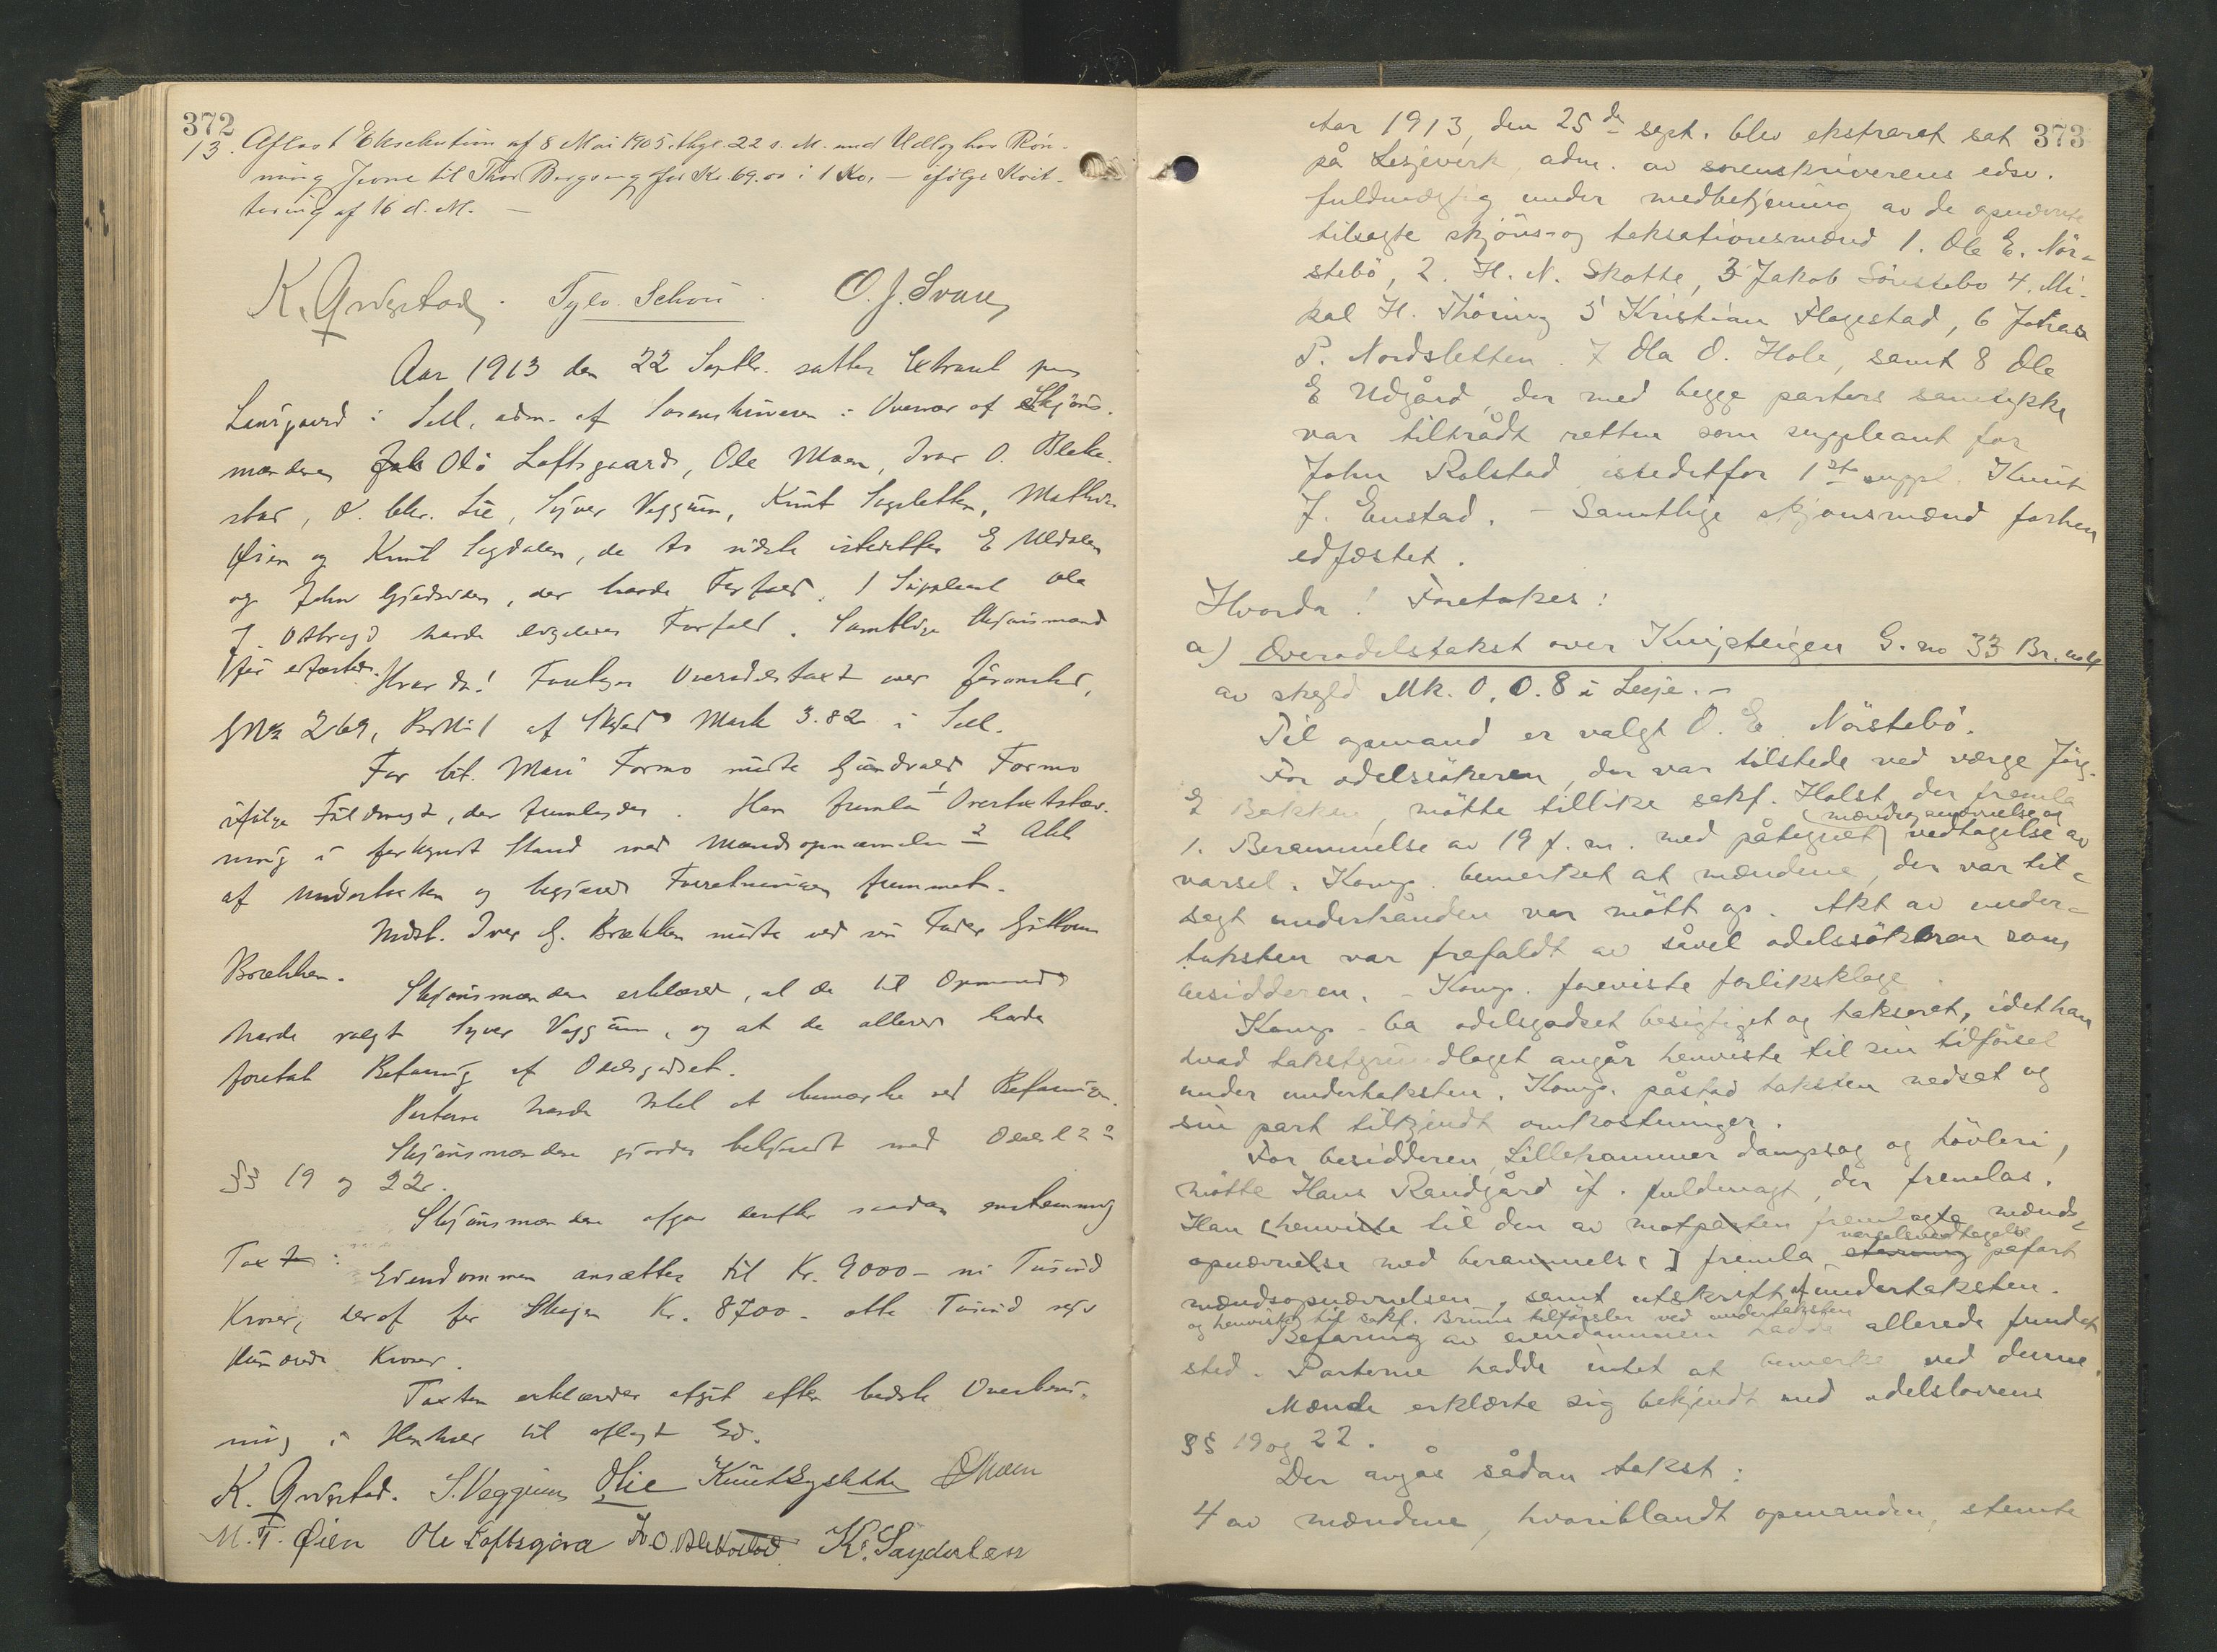 372
13. Aflæst Eksekution af 8 Mai 1905, thgl. 22 s. M. med Udlæg hos Røn-
ning Jevne til Thor Bergseng for Kr. 69.00 i 1 Ko, — ifølge Kvit-
tering af 16 d. M. —
K. Grøtstad. Sylv. Schou. O. J. Svare
Aar 1913 den 22 Septbr. sattes Extraret paa
Laurgaard i Sell, adm. af Sorenskriveren i Overvær af Skjøns-
mændene Ole Loftsgaard, Ole Moen, Ivar O. Bleke-
stad, O. Lie, Syver Veggum, Knut Sygsletten, Mathias
Øien og Knut Sagdalen, de to sidste istedetfor E Uldalen
og John Gjedsiden, der havde Forfald. 1 Suppleant Ola
J. havde ligeledes Forfald. Samtlige Skjønsmænd
før edfæstet. Hvorda! Foretages Overodelstaxt over
GNo 269, BrNo 1 af Skyld Mark 3.82 i Sell.
For Cit. Mari Formo mødte Gundvald Formo
ifølge Fuldmagt, der fremlagdes. Han fremla 1
i forkyndt Stand med Mandsopnævnelse 2 Akt
af Undertaxten og begjæred Forretningen fremmet.
Indst. Iver G. Brækken mødte ved sin Fader Guttorm
Brækken.
Skjønsmændene erklæred, at de til Opmand
havde valgt Syver Veggum, og at de allerede havde
foretat Befaring af Odelsgodset.
Parterne havde Intet at bemærke ved Befaringen.
Skjønsmændene gjordes bekjendt med Odelsl.
§§ 19 og 22.
Skjønsmændene afgav derefter saadan enstemmig
Taxt:
Eiendommen ansættes til Kr. 9000 — ni Tusind
Kroner, deraf for Skogen Kr. 8700 — otte Tusind syv
Hundrede Kroner.
Taxten erklæredes afgit efter bedste Overbevis-
ning i Henhold til aflagt Ed.
K. Grøtstad. S. Veggum OLie Knut Sygsletten OMoen
M. T. Øien Ole Loftsgård I. O. Blekastad K. Sagdalen
373
Aar 1913, den 25de sept. blev ekstraret sat
på Lesjeverk, adm. av sorenskriverens edsv.
fuldmægtig under medbetjening av de opnævnte
tilsagte skjøns- og taksationsmænd 1. Ole E. Nör-
stebö, 2. H. N. Skotte, 3 Jakob Sönstebö 4. Mi-
kal H. Thöring 5 Kristian Flagestad, 6 Johan
P. Nordsletten. 7 Ola O. Hole, samt 8 Ole
E Udgård, der med begge parters samtykke
var tiltrådt retten som suppleant for
John Rolstad istedetfor 1ste suppl. Knut
J. Enstad. — Samtlige skjönsmænd forhen
edfæstet.
Hvorda! Foretokes:
a) Overodelstakst over Knipteigen G. no 33 Br. no
av skyld Mk. 0,0.8 i Lesje. —
Til opmand er valgt O. E. Nörstebö.
For odelssökeren, der var tilstede ved værge Jörg.
E Bakken, mötte tillike sakf. Holst, der fremla
1. Berammelse av 19 f. m. med påtegnet (mændsopnævnelse og) vedtagelse av
varsel. Komp. bemerket at mændene, der var til-
sagt underhånden var mött op. Akt av under-
taksten var frafaldt av såvel odelssökeren som
besidderen. — Komp. foreviste forliksklage.
Komp — ba odelsgodset besigtiget og taksert, idet han
hvad takstgrundlaget angår henviste til sin tilförsel
under undertaksten. Komp. påstod taksten nedsat og
sin part tilkjendt omkostninger.
For besidderen, Lillehammer dampsag og hövleri,
mötte Hans Randgård if. fuldmagt, der fremlas.
Han [henviste til den av motparten fremlagte mænds-
opnævnelse med berammelse] fremla varselsvedtagelse påført
mændsopnævnelsen, samt utskrift af undertaksten.
og henviste til sakf. Bruns tilförsler ved undertaksten
Befaring av eiendommen hadde allerede fundet
sted. Parterne hadde intet at bemerke ved denne.
Mænde erklærte sig bekjendt med odelslovens
§§ 19 og 22.
Der avgås sådan takst:
4 av mændene, hvoriblandt opmanden, stemte